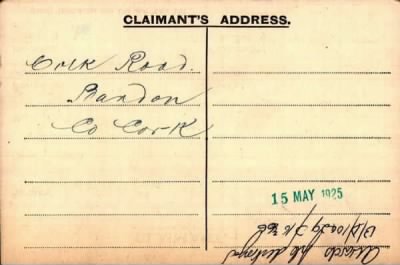 CLAIMANT'S ADDRESS.
Cork Road.
Bandon
Co Cork
15 MAY 1925